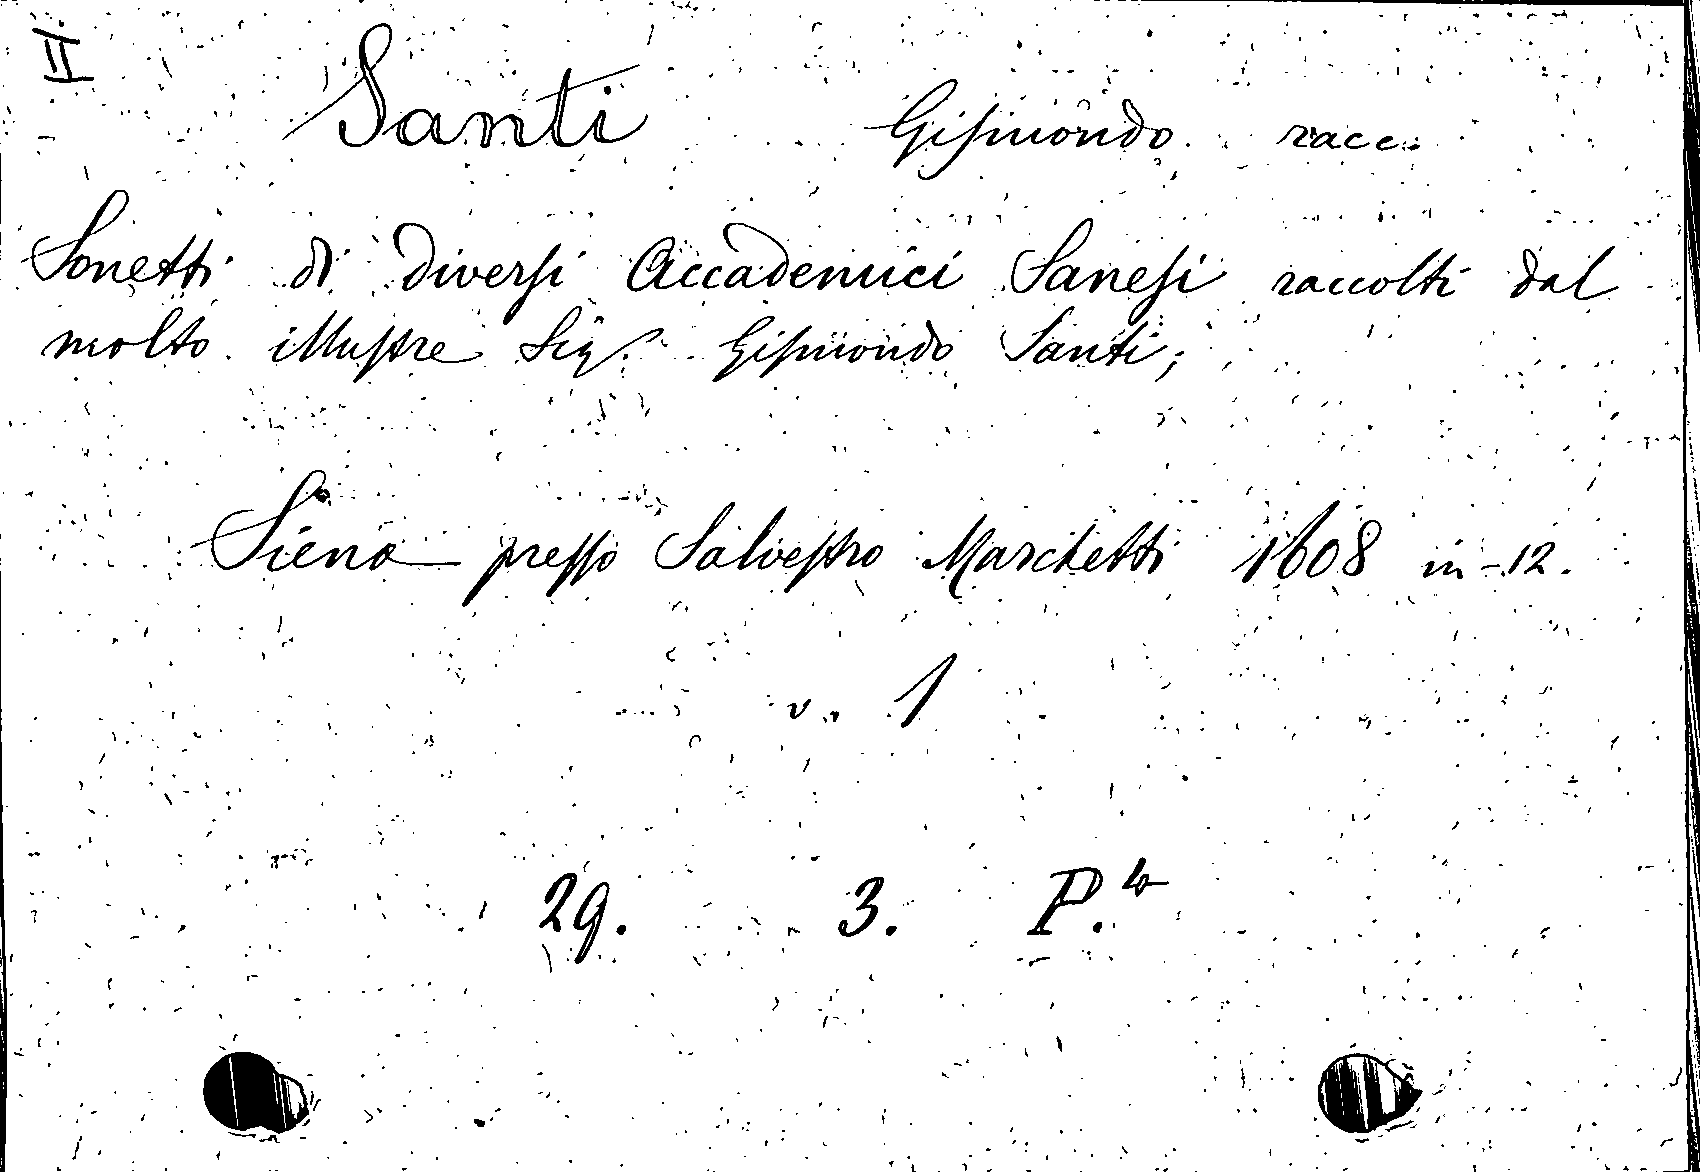 II
Santi Gismondo racc.
Sonetti di diversi Accademici Sanesi raccolti dal
molto illustre Sig. Gismondo Santi;
Siena presso Salvestro Marchetti 1608 in-12.
v. 1
29. 3. P.to